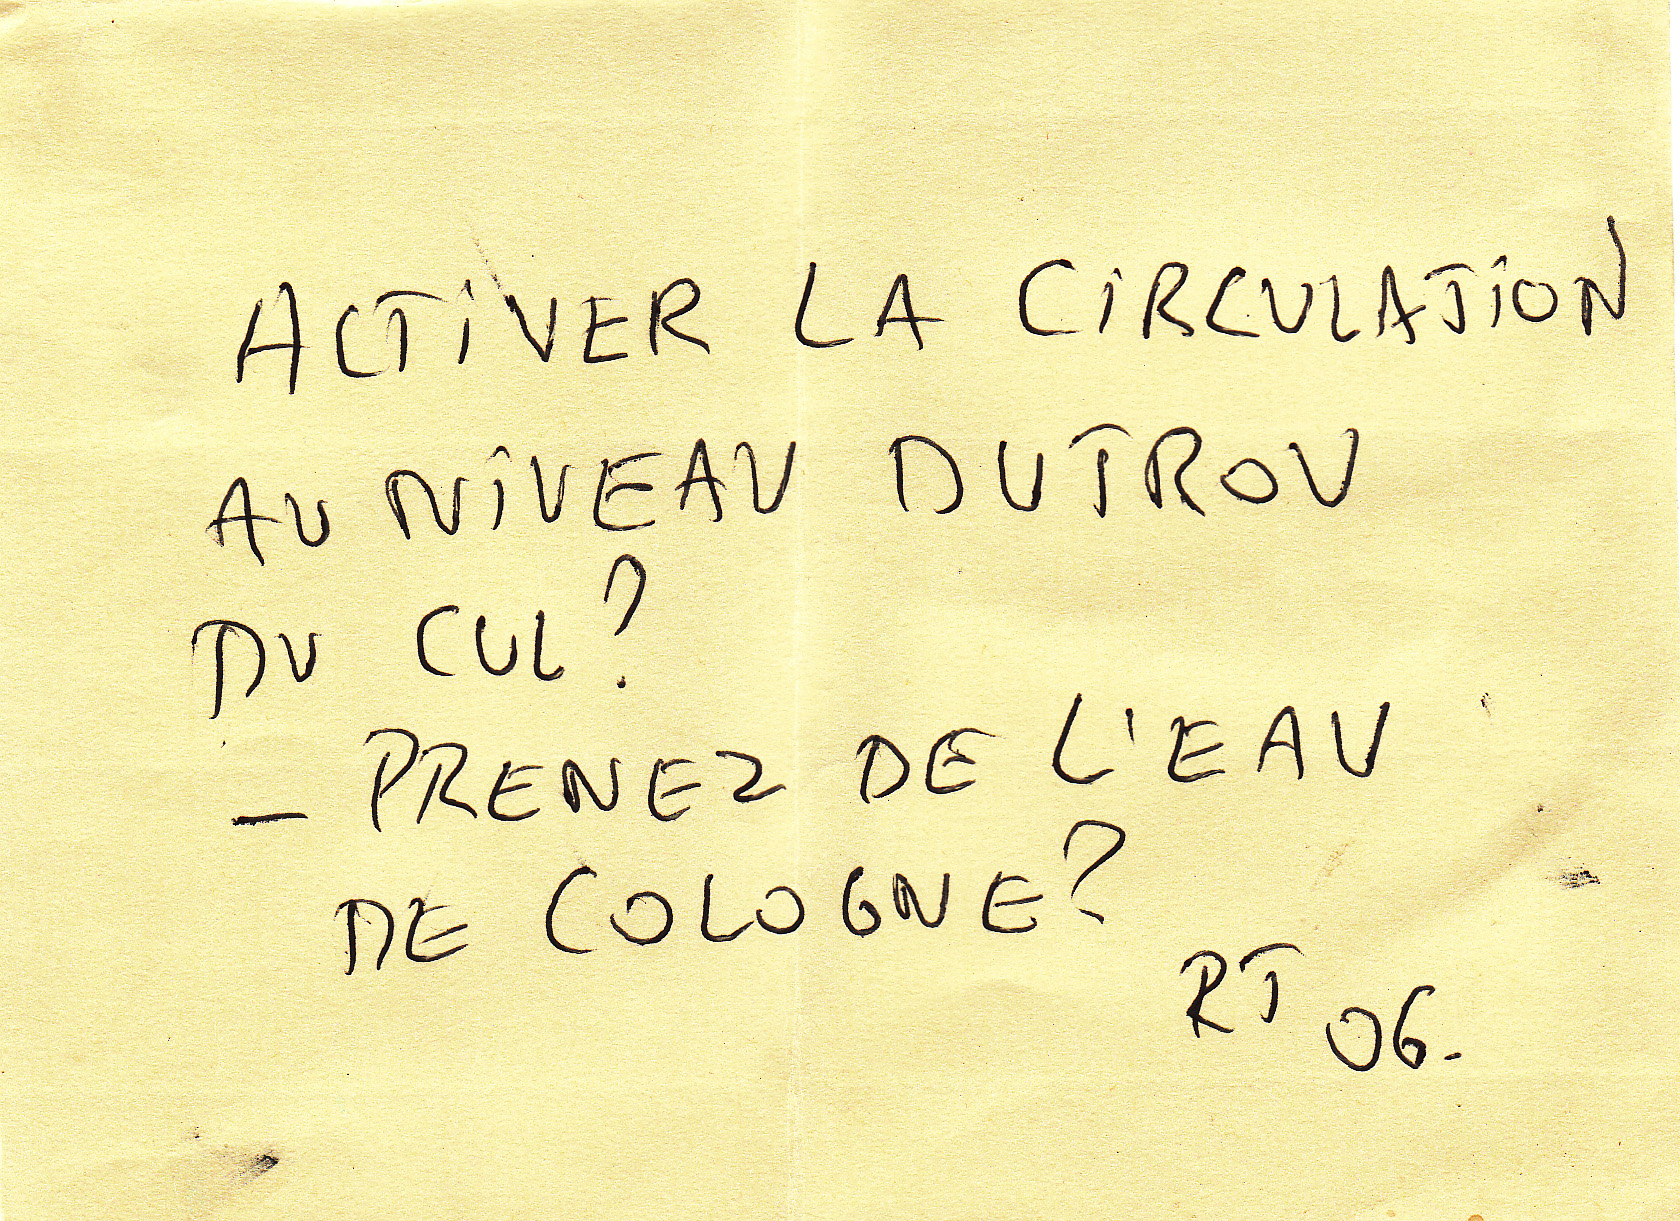 ACTIVER LA CIRCULATION
AU NIVEAU DU TROU
DU CUL?
– PRENEZ DE L'EAU
DE COLOGNE?
RT 06.